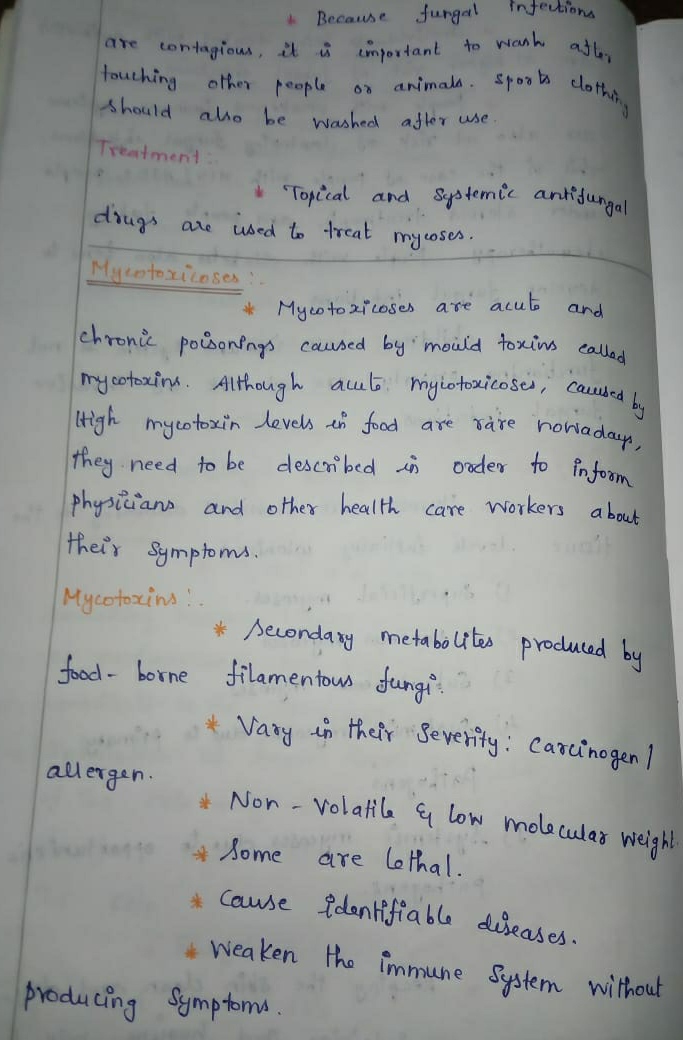 * Because fungal infections
are contagious, it is important to wash after
touching other people or animals. Sports clothing
should also be washed after use.
Treatment :.
* Topical and systemic antifungal
drugs are used to treat mycoses.
Mycotoxicoses :.
* Mycotoxicoses are acute and
chronic poisonings caused by mould toxins called
mycotoxins. Although acute mycotoxicoses, caused by
High mycotoxin levels in food are rare nowadays,
they need to be described in order to inform
physicians and other health care workers about
their symptoms.
Mycotoxins :.
* Secondary metabolites produced by
food-borne filamentous fungi.
* Vary in their severity: carcinogen /
allergen.
* Non-volatile & low molecular weight.
* Some are lethal.
* Cause identifiable diseases.
* Weaken the immune system without
producing symptoms.